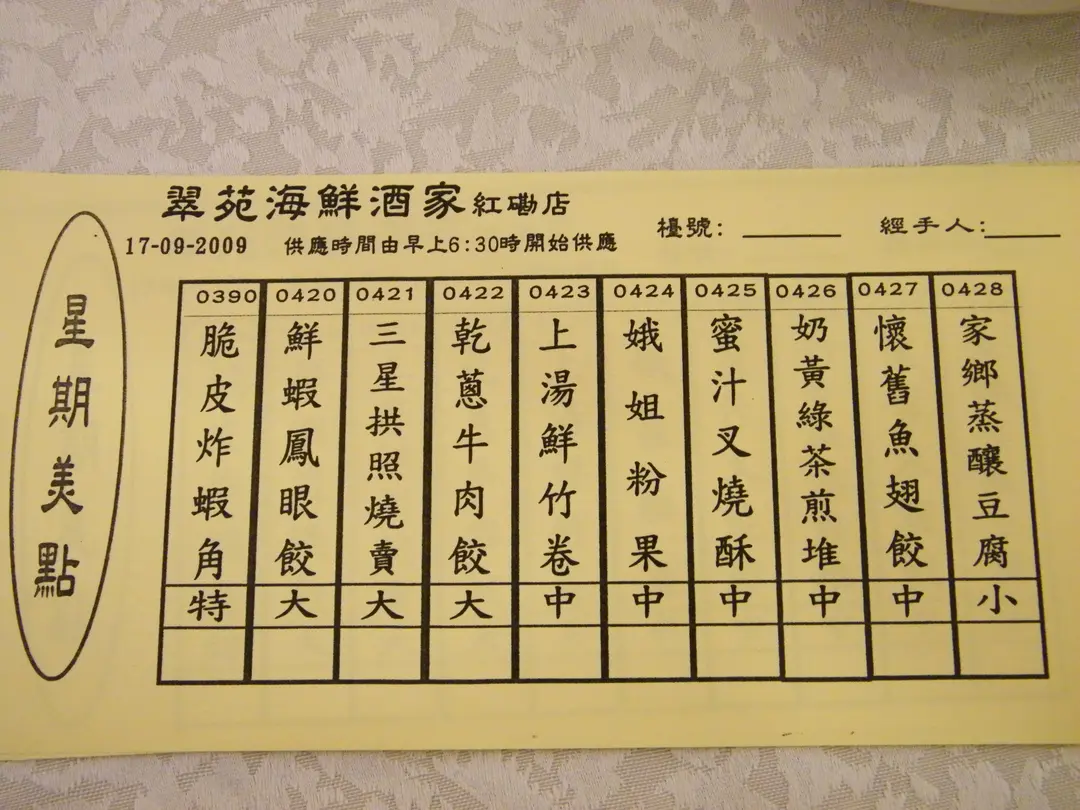 翠苑海鮮酒家紅磡店
17-09-2009 供應時間由早上6:30時開始供應
檯號:
經手人:
星期美點
0390 0420 0421 0422 0423 0424 0425 0426 0427 0428
脆皮炸蝦角
鮮蝦鳳眼餃
三星拱照燒賣
乾蔥牛肉餃
上湯鮮竹卷
娥姐粉果
蜜汁叉燒酥
奶黃綠茶煎堆
懷舊魚翅餃
家鄉蒸釀豆腐
特 大 大 大 中 中 中 中 中 小